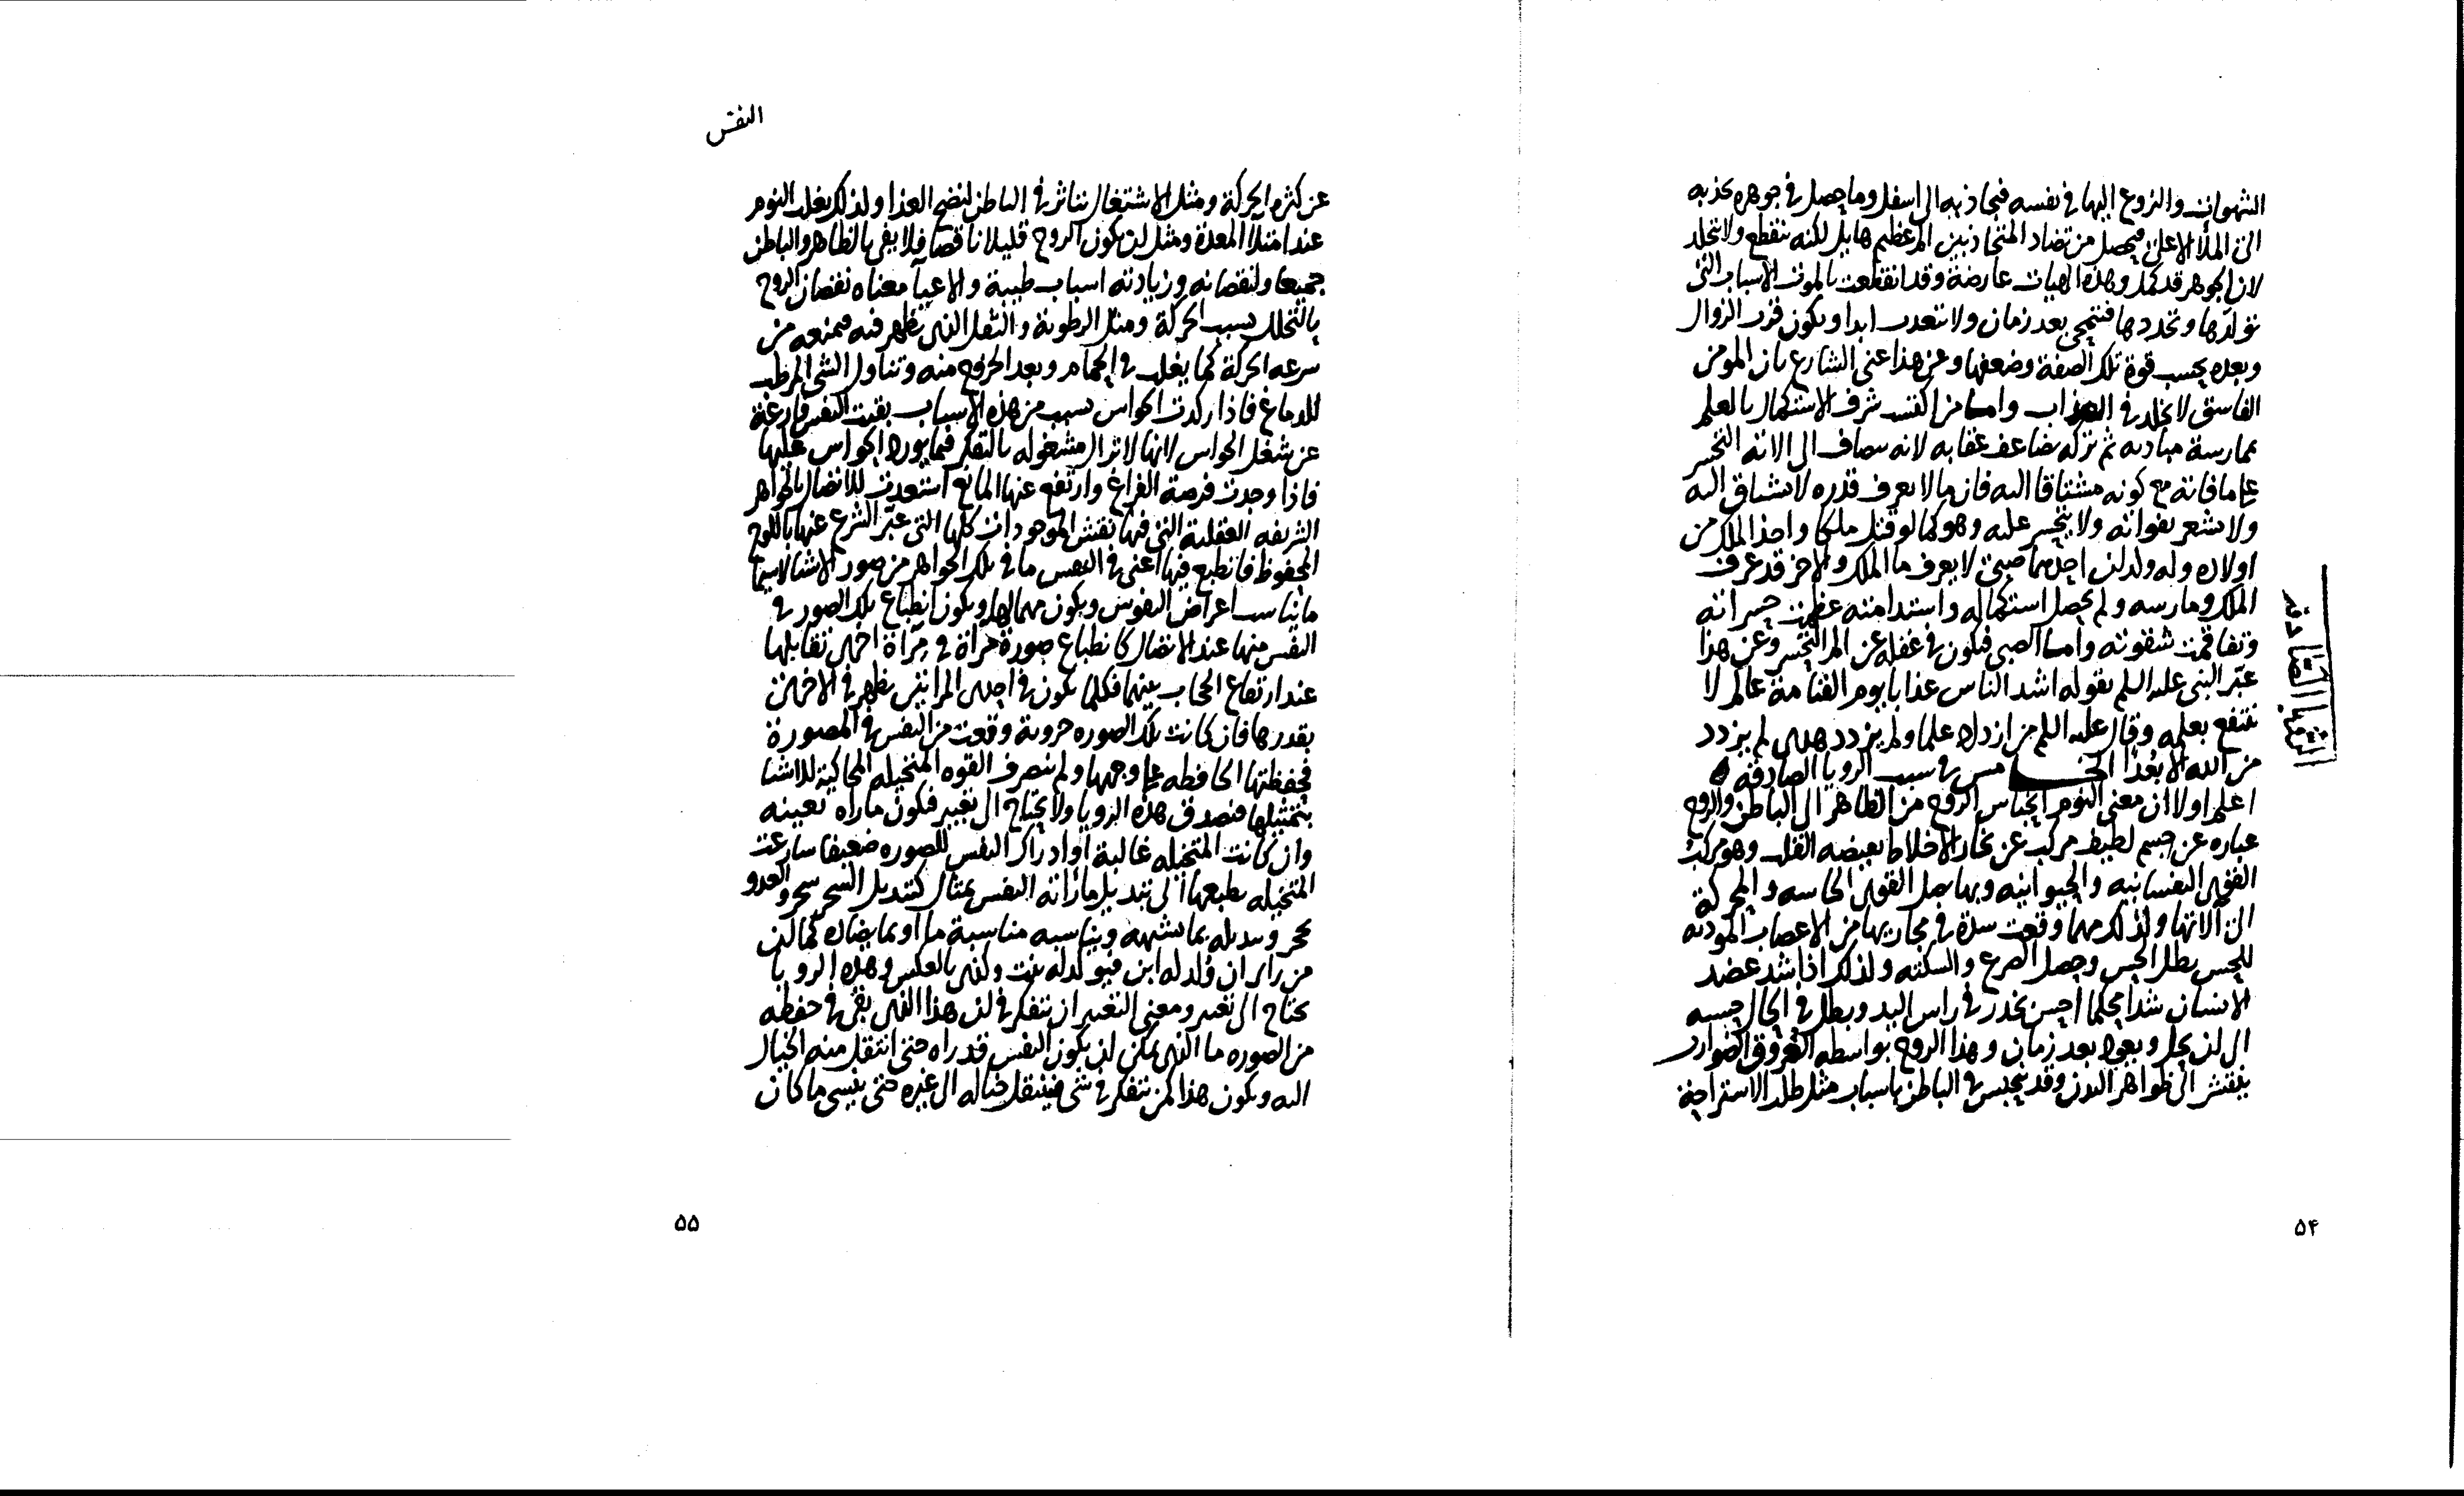 الشهوات والنزوع اليها في نفسه فيجاذبه الى اسفل وما حصل في جوهره يجذبه
الى الملأ الاعلى فيحصل من تضاد المتجاذبين الم عظيم هايل لكنه ينقطع ولا يتخلد
لان الجوهر قد كمل وهذه الهيات عارضة وقد انقطعت بالموت الاسباب التي
تولدها وتجددها فتنمحي بعد زمان ولا تتعذب ابدا ويكون قرب الزوال
وبعده بحسب قوة تلك الصفة وضعفها وعن هذا عنى الشارع بان المومن
الفاسق لا يخلد في العذاب واما من اكتسب شرف الاستكمال بالعلم
بممارسة مباديه ثم تركه يضاعف عقابه لانه يضاف الى الامه التحسر
على ما فاته مع كونه مشتاقا اليه فان ما لا يعرف قدره لا يشتاق اليه
ولا يشعر بفواته ولا يتحسر عليه وهو كما لو قتل ملك واخذ الملك من
اولاده وله ولدان احدهما صبي لا يعرف ما الملك والاخر قد عرف
الملك ومارسه ولم يحصل استكماله واستدامته عظمت حسراته
وتفاقمت شقوته واما الصبي فيكون في غفله عن الم التحسر وعن هذا
عبّر النبي عليه السلم بقوله اشد الناس عذابا يوم القيامة عالم لا
ينتفع بعلمه وقال عليه السلم من ازداد علما ولم يزدد هدى لم يزدد
من الله الا بعدا الخامس في سبب الرويا الصادقه
اعلم اولا ان معنى النوم انحباس الروح من الظاهر الى الباطن والروح
عباره عن جسم لطيف مركب عن بخار الاخلاط بعيضه القلب وهو مركب
القوى النفسانيه والحيوانيه وبها يصل القوى الحاسه والمحركة
الى آلاتها ولذلك مهما وقعت سدة في مجاريها من الاعصاب المودية
للحس بطل الحس وحصل الصرع والسكته ولذلك اذا شد عضد
الانسان شدا محكما احس بخدر في راس اليد وبطل في الحال حسه
الى ان يحل ويعود بعد زمان وهذا الروح بواسطه العروق الضوارب
ينتشر الى ظواهر البدن وقد ينحبس في الباطن باسباب مثل طلب الاستراحة
الرؤيا الصادقة
٥٤
النفس
عن كثرة الحركة ومثل الاشتغال بتاثر في الباطن لنضج الغذا ولذلك يغلب النوم
عند امتلا المعدة ومثل ان يكون الروح قليلا ناقصا فلا يفي بالظاهر والباطن
جميعا ولنقصانه وزيادته اسباب طبية والاعيآ معناه نقصان الروح
بالتحلل بسبب الحركة ومثل الرطوبة والثقل الذي يظهر فيه فيمنعه من
سرعه الحركة كما يغلب في الحمام وبعد الخروج منه وتناول الشي المرطب
للدماغ فاذا ركدت الحواس بسبب من هذه الاسباب بقيت النفس فارغة
عن شغل الحواس لانها لا تزال مشغوله بالتفكر فيما يورده الحواس عليها
فاذا وجدت فرصة الفراغ وارتفع عنها المانع استعدت للاتصال بالجواهر
الشريفه العقلية التي فيها نقش الموجودات كلها التي عبّر الشرع عنها باللوح
المحفوظ فانطبع فيها اعني في النفس ما في تلك الجواهر من صور الاشيا لا سيما
ما يناسب اعراض النفوس ويكون مهما لها ويكون انطباع تلك الصور في
النفس منها عند الاتصال كانطباع صورة مرآة في مرآة اخرى تقابلها
عند ارتفاع الحجاب بينهما فكلما يكون في احدى المراتين يظهر في الاخرى
بقدرها فان كانت تلك الصوره جزوية وقعت من النفس في المصورة
فحفظتها الحافظه على وجهها ولم يتصرف القوه المتخيله المحاكية للاشيا
بتمثيلها فتصدق هذه الرويا ولا يحتاج الى تعبير فيكون ما راه بعينه
وان كانت المتخيله غالبة او ادراك النفس للصوره ضعيفا سارعت
المتخيله بطبعها الى تبديل ما راته النفس بمثال كتبديل الشجر والعدو
بحر وتبديله بما يشبهه ويناسبه مناسبة ما او بما يضاده كما ان
من راى ان ولد له ابن فيولد له بنت وكذى بالعكس وهذه الرويا
يحتاج الى تعبير ومعنى التعبير ان يتفكر في ان هذا الذي بقي في حفظه
من الصوره ما الذي يمكن ان يكون النفس قد راه حتى انتقل منه الخيال
اليه ويكون هذا كمن يتفكر في شي فينتقل خياله الى غيره حتى ينسى ما كان
٥٥